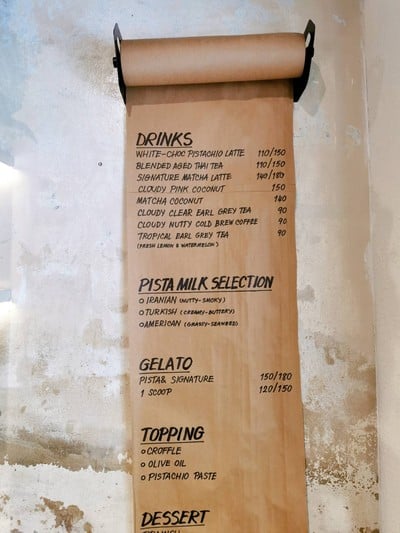 DRINKS
WHITE-CHOC PISTACHIO LATTE 110/150
BLENDED AGED THAI TEA 110/150
SIGNATURE MATCHA LATTE 140/180
CLOUDY PINK COCONUT 150
MATCHA COCONUT 140
CLOUDY CLEAR EARL GREY TEA 90
CLOUDY NUTTY COLD BREW COFFEE 90
TROPICAL EARL GREY TEA 90
(FRESH LEMON & WATERMELON)
PISTA MILK SELECTION
O IRANIAN (NUTTY-SMOKY)
O TURKISH (CREAMY-BUTTERY)
O AMERICAN (GRASSY-SEAWEED)
GELATO
PISTA& SIGNATURE 150/180
1 SCOOP 120/150
TOPPING
O CROFFLE
O OLIVE OIL
O PISTACHIO PASTE
DESSERT